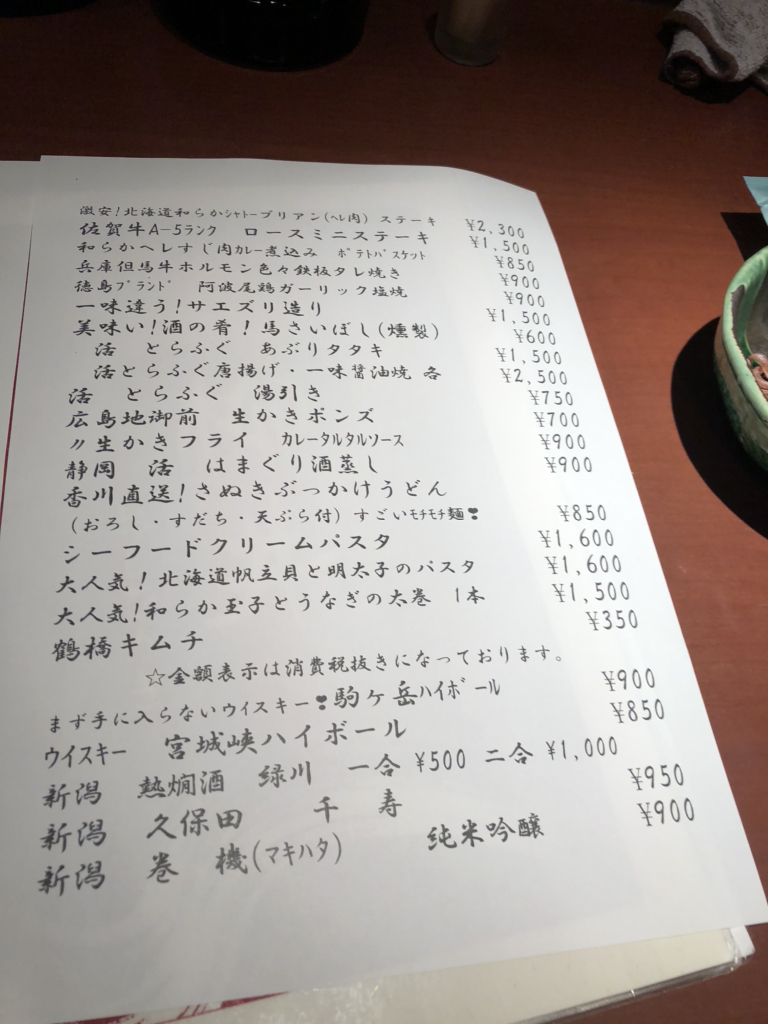 激安!北海道和らかシャトーブリアン(ヘレ肉) ステーキ ¥2,300
佐賀牛A-5ランク ロースミニステーキ ¥1,500
和らかヘレすじ肉カレー煮込み ポテトバスケット ¥850
兵庫但馬牛ホルモン色々鉄板タレ焼き ¥900
徳島ブランド 阿波尾鶏ガーリック塩焼 ¥900
一味違う!サエズリ造り ¥1,500
美味い!酒の肴!馬さいぼし(燻製) ¥600
活 とらふぐ あぶりタタキ ¥1,500
活とらふぐ唐揚げ・一味醤油焼 各 ¥2,500
活 とらふぐ 湯引き ¥750
広島地御前 生かきポンズ ¥700
〃生かきフライ カレータルタルソース ¥900
静岡 活 はまぐり酒蒸し ¥900
香川直送!さぬきぶっかけうどん
(おろし・すだち・天ぷら付)すごいモチモチ麺❣ ¥850
シーフードクリームパスタ ¥1,600
大人気!北海道帆立貝と明太子のパスタ ¥1,600
大人気!和らか玉子とうなぎの太巻 1本 ¥1,500
鶴橋キムチ ¥350
☆金額表示は消費税抜きになっております。
まず手に入らないウイスキー❣駒ヶ岳ハイボール ¥900
ウイスキー 宮城峡ハイボール ¥850
新潟 熱燗酒 緑川 一合 ¥500 二合 ¥1,000
新潟 久保田 千寿 ¥950
新潟 巻機(マキハタ) 純米吟醸 ¥900